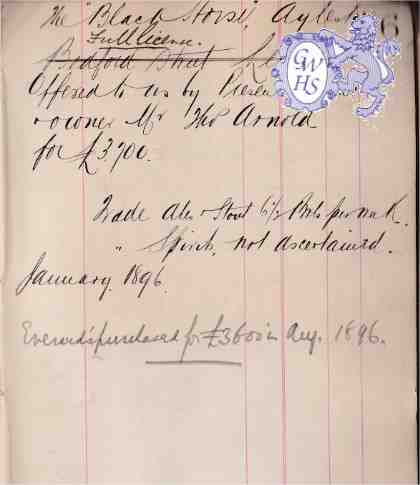 The "Black Horse", Aylest
Full licence.
Bedford Street
Offered to us by Presen
& owner Mr Thos Arnold
for £3,700.
Trade Ales & Stout 6½ Brls per week.
" Spirits, not ascertained.
January 1896.
Everards purchased for £3600 in Aug. 1896.
GW
HS
6